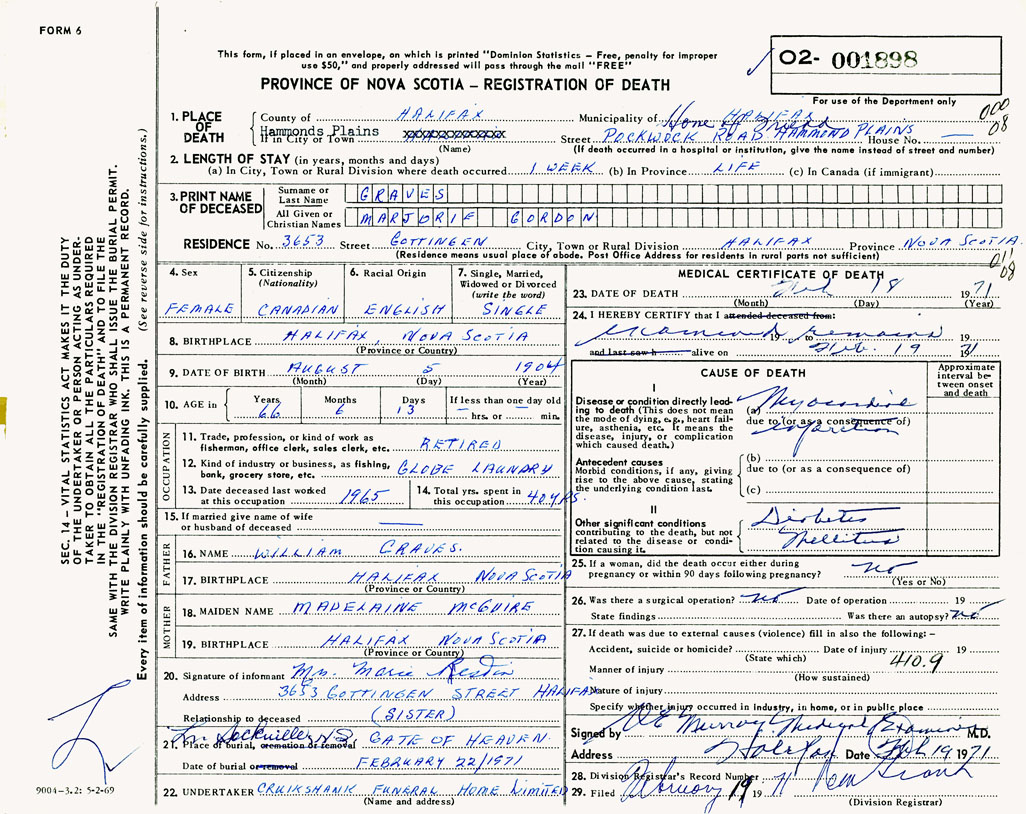 FORM 6
This form, if placed in an envelope, on which is printed "Dominion Statistics – Free, penalty for improper
use $50," and properly addressed will pass through the mail "FREE"
PROVINCE OF NOVA SCOTIA – REGISTRATION OF DEATH
O2- 001898
For use of the Department only
SEC. 14 – VITAL STATISTICS ACT MAKES IT THE DUTY
OF THE UNDERTAKER OR PERSON ACTING AS UNDER-
TAKER TO OBTAIN ALL THE PARTICULARS REQUIRED
IN THE "REGISTRATION OF DEATH" AND TO FILE THE
SAME WITH THE DIVISION REGISTRAR WHO SHALL ISSUE THE BURIAL PERMIT.
WRITE PLAINLY WITH UNFADING INK. THIS IS A PERMANENT RECORD.
Every item of information should be carefully supplied. (See reverse side for instructions.)
1. PLACE OF DEATH County of HALIFAX Municipality of HALIFAX 000
Home of Friend 08
Hammonds Plains
If in City or Town (Name) Street POCKWOCK ROAD HAMMOND PLAINS House No. —
(If death occurred in a hospital or institution, give the name instead of street and number)
2. LENGTH OF STAY (in years, months and days)
(a) In City, Town or Rural Division where death occurred 1 WEEK (b) In Province LIFE (c) In Canada (if immigrant)
3. PRINT NAME OF DECEASED Surname or Last Name GRAVES
All Given or Christian Names MARJORIE GORDON
RESIDENCE No. 3653 Street GOTTINGEN City, Town or Rural Division HALIFAX Province NOVA SCOTIA
(Residence means usual place of abode. Post Office Address for residents in rural parts not sufficient) 011 08
4. Sex 5. Citizenship (Nationality) 6. Racial Origin 7. Single, Married, Widowed or Divorced (write the word)
FEMALE CANADIAN ENGLISH SINGLE
8. BIRTHPLACE HALIFAX, NOVA SCOTIA
(Province or Country)
9. DATE OF BIRTH AUGUST 5 1904
(Month) (Day) (Year)
10. AGE in Years 66 Months 6 Days 13 If less than one day old — hrs. or — min.
OCCUPATION
11. Trade, profession, or kind of work as
fisherman, office clerk, sales clerk, etc. RETIRED
12. Kind of industry or business, as fishing,
bank, grocery store, etc. GLOBE LAUNDRY
13. Date deceased last worked at this occupation 1965 14. Total yrs. spent in this occupation 40 YRS.
15. If married give name of wife
or husband of deceased —
FATHER
16. NAME WILLIAM GRAVES.
17. BIRTHPLACE HALIFAX NOVA SCOTIA
(Province or Country)
MOTHER
18. MAIDEN NAME MADELAINE McGUIRE
19. BIRTHPLACE HALIFAX NOVA SCOTIA
(Province or Country)
20. Signature of informant Mrs. Marie
Address 3653 GOTTINGEN STREET HALIFAX
Relationship to deceased (SISTER)
Sackville N.S.
21. Place of burial, cremation or removal GATE OF HEAVEN.
Date of burial or removal FEBRUARY 22/1971
22. UNDERTAKER CRUIKSHANK FUNERAL HOME LIMITED
(Name and address)
MEDICAL CERTIFICATE OF DEATH
23. DATE OF DEATH Feb 18 1971
(Month) (Day) (Year)
24. I HEREBY CERTIFY that I attended deceased from:
examined remains 19 to 19
and last saw h alive on Feb. 19 1971
CAUSE OF DEATH
Approximate interval between onset and death
I
Disease or condition directly lead-
ing to death (This does not mean
the mode of dying, e.g., heart fail-
ure, asthenia, etc. It means the
disease, injury, or complication
which caused death.)
(a) Myocardial
due to (or as a consequence of)
infarction
Antecedent causes
Morbid conditions, if any, giving
rise to the above cause, stating
the underlying condition last.
(b)
due to (or as a consequence of)
(c)
II
Other significant conditions
contributing to the death, but not
related to the disease or condi-
tion causing it.
Diabetes
Mellitus
25. If a woman, did the death occur either during
pregnancy or within 90 days following pregnancy? no
(Yes or No)
26. Was there a surgical operation? no Date of operation 19
State findings Was there an autopsy? no
27. If death was due to external causes (violence) fill in also the following: –
Accident, suicide or homicide? Date of injury 19
(State which) 410.9
Manner of injury
(How sustained)
Nature of injury
Specify whether injury occurred in industry, in home, or in public place
Signed by Murray Medical Examiner M.D.
Address Halifax Date Feb 19 1971
28. Division Registrar's Record Number
29. Filed February 19 19
(Division Registrar)
9004-3.2: 5-2-69